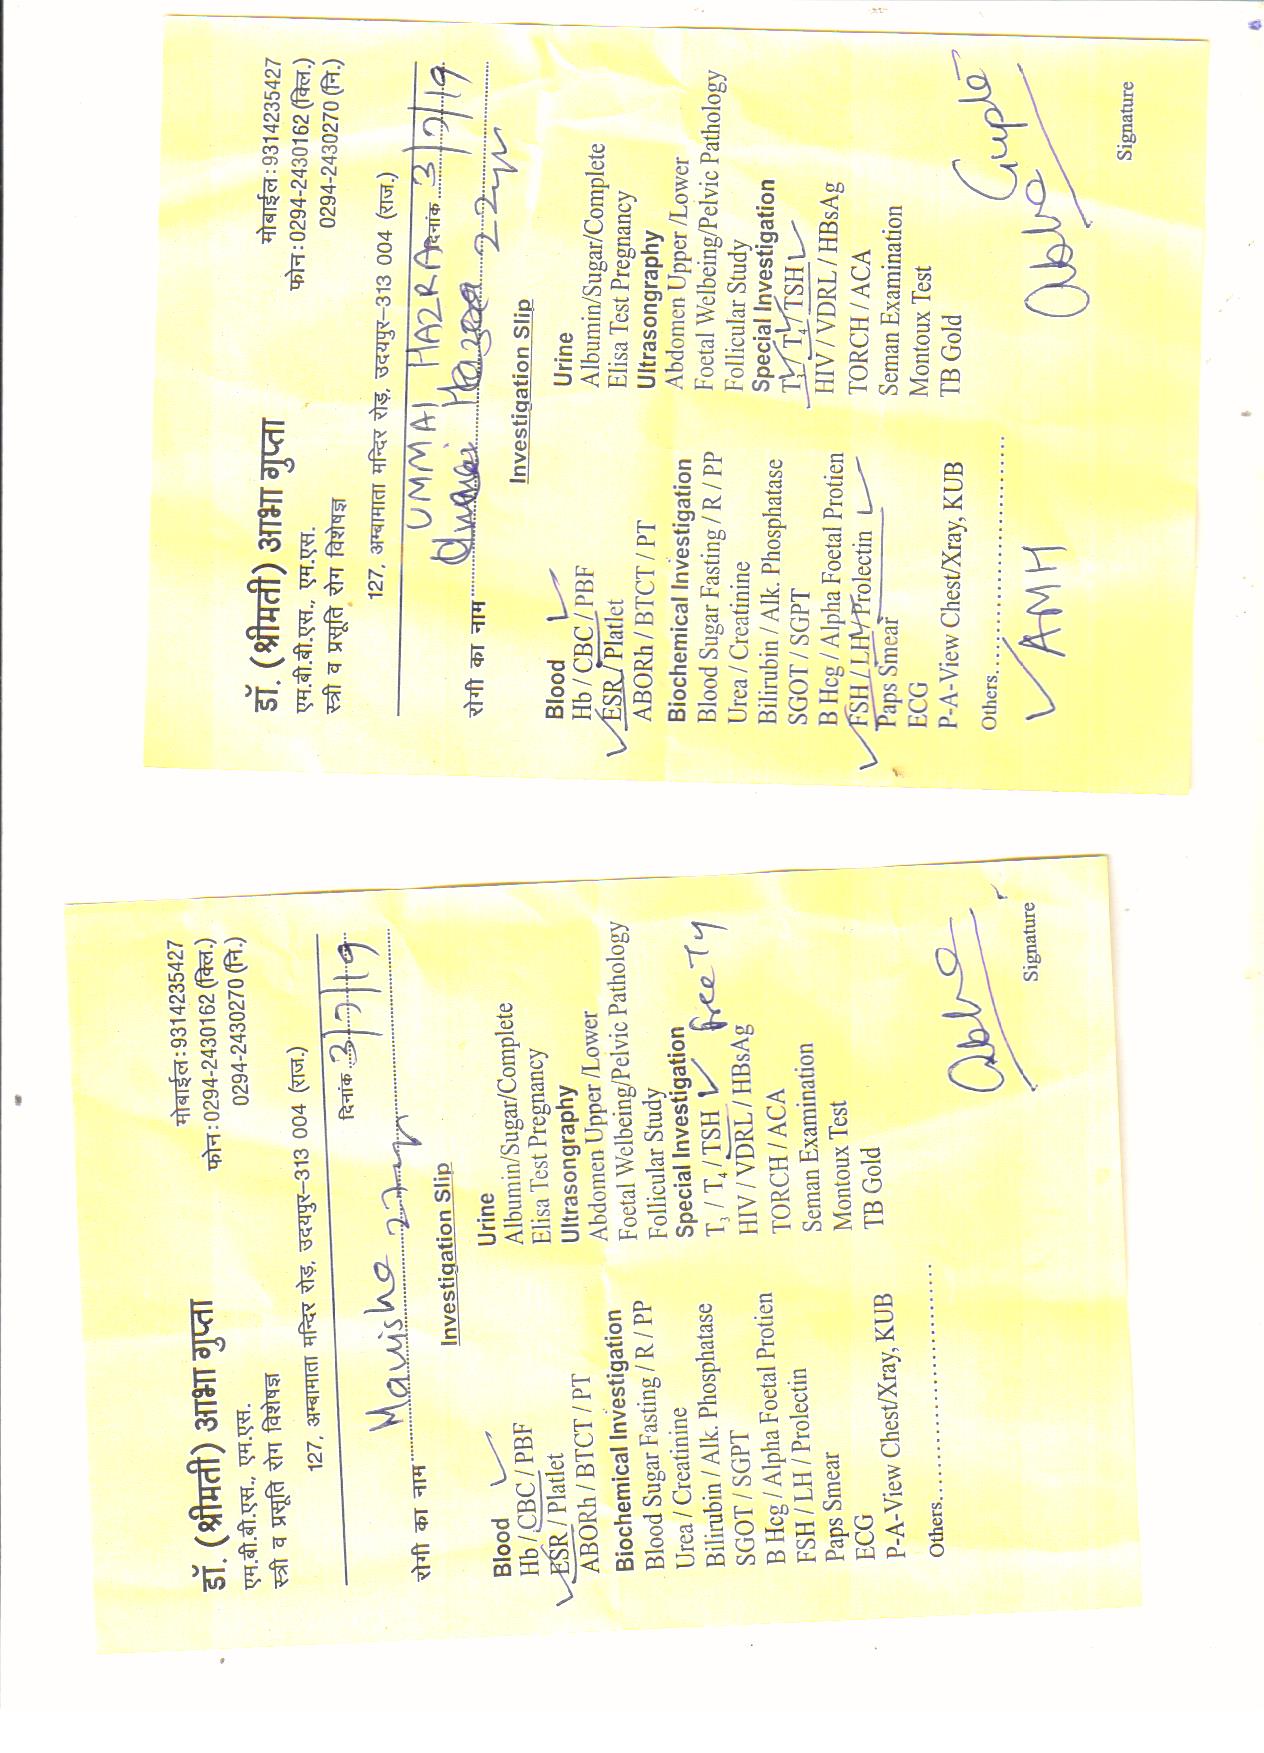 डॉ. (श्रीमती) आभा गुप्ता
एम.बी.बी.एस., एम.एस.
स्त्री व प्रसूति रोग विशेषज्ञ
मोबाईल : 9314235427
फोन : 0294-2430162 (क्लि.)
0294-2430270 (नि.)
127, अम्बामाता मन्दिर रोड़, उदयपुर–313 004 (राज.)
दिनांक 3/7/19
रोगी का नाम Manisha 27yr
Investigation Slip
Blood
Hb / CBC / PBF
ESR / Platlet
ABORh / BTCT / PT
Biochemical Investigation
Blood Sugar Fasting / R / PP
Urea / Creatinine
Bilirubin / Alk. Phosphatase
SGOT / SGPT
B Hcg / Alpha Foetal Protien
FSH / LH / Prolectin
Paps Smear
ECG
P-A-View Chest/Xray, KUB
Others
Urine
Albumin/Sugar/Complete
Elisa Test Pregnancy
Ultrasongraphy
Abdomen Upper /Lower
Foetal Welbeing/Pelvic Pathology
Follicular Study
Special Investigation
T3 / T4 / TSH free T4
HIV / VDRL / HBsAg
TORCH / ACA
Seman Examination
Montoux Test
TB Gold
Abha
Signature
डॉ. (श्रीमती) आभा गुप्ता
एम.बी.बी.एस., एम.एस.
स्त्री व प्रसूति रोग विशेषज्ञ
मोबाईल : 9314235427
फोन : 0294-2430162 (क्लि.)
0294-2430270 (नि.)
127, अम्बामाता मन्दिर रोड़, उदयपुर–313 004 (राज.)
UMMAI HAZRA दिनांक 3/7/19
रोगी का नाम Hazra 22yr
Investigation Slip
Blood
Hb / CBC / PBF
ESR / Platlet
ABORh / BTCT / PT
Biochemical Investigation
Blood Sugar Fasting / R / PP
Urea / Creatinine
Bilirubin / Alk. Phosphatase
SGOT / SGPT
B Hcg / Alpha Foetal Protien
FSH / LH / Prolectin
Paps Smear
ECG
P-A-View Chest/Xray, KUB
Others
AMH
Urine
Albumin/Sugar/Complete
Elisa Test Pregnancy
Ultrasongraphy
Abdomen Upper /Lower
Foetal Welbeing/Pelvic Pathology
Follicular Study
Special Investigation
T3 / T4 / TSH
HIV / VDRL / HBsAg
TORCH / ACA
Seman Examination
Montoux Test
TB Gold
Abha Gupta
Signature